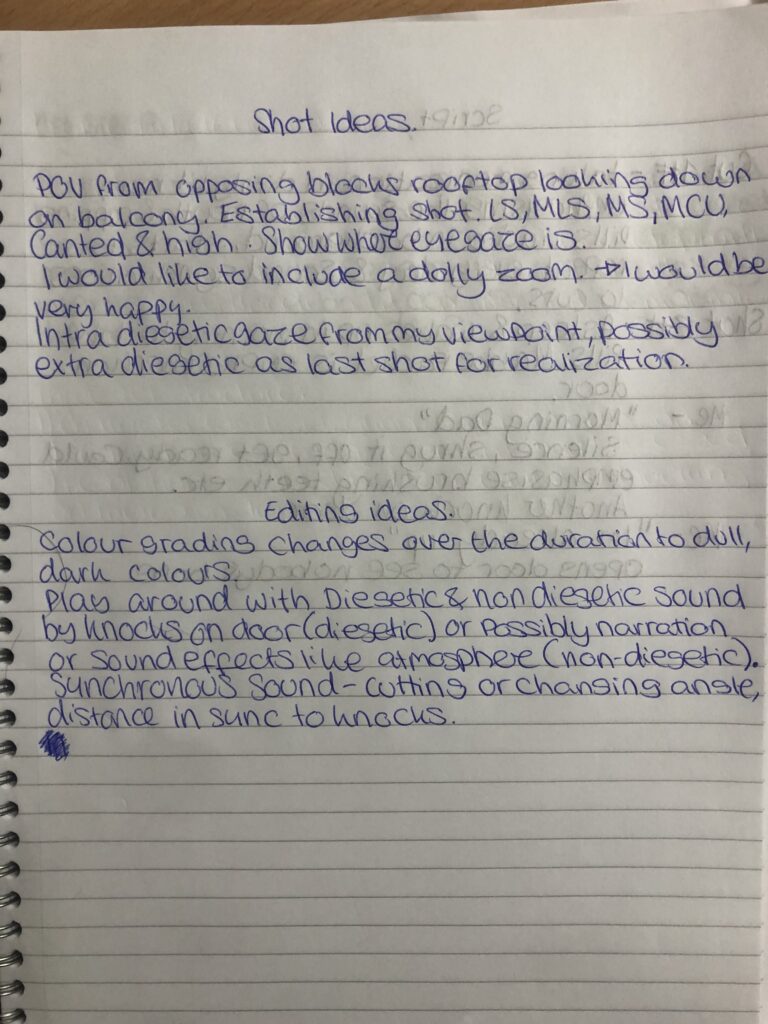 Shot Ideas.
POV from opposing blocks rooftop looking down
on balcony. Establishing shot. LS, MLS, MS, MCU,
Canted & high. Show where eyegaze is.
I would like to include a dolly zoom. → I would be
very happy.
Intra diegetic gaze from my viewpoint, possibly
extra diegetic as last shot for realization.
Editing ideas.
Colour grading changes over the duration to dull,
dark colours.
Play around with Diegetic & non diegetic sound
by knocks on door (diegetic) or possibly narration
or sound effects like atmosphere (non-diegetic).
Synchronous sound - cutting or changing angle,
distance in sync to knocks.